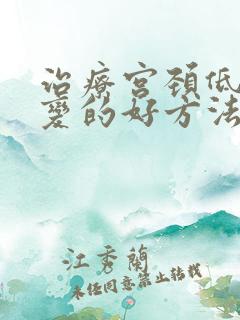 治療宫頚低
變的好方法
江秀蘭
未经同意禁止转载